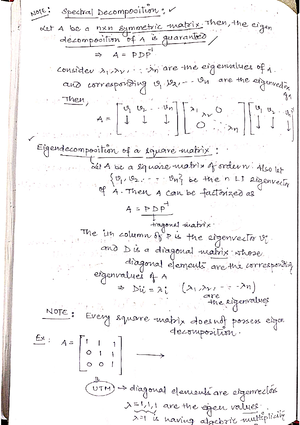 NOTE: Spectral Decomposition:
Let A be a nxn symmetric matrix. Then, the eigen
decomposition of A is guaranteed
⇒ A = PDP⁻¹
consider λ₁, λ₂, ... λₙ are the eigenvalues of A
and corresponding v₁ v₂ ... vₙ are the eigenvectors
Then,
A = [v₁ v₂ ... vₙ ↓ ↓ ↓] [λ₁ λ₂ 0 0 λₙ] [v₁ v₂ vₙ ↓ ↓ ↓]
Eigendecomposition of a square matrix:
Let A be a square matrix of order n. Also let
{v₁, v₂, ... vₙ} be the n LI eigenvectors
of A. Then A can be factorized as
A = PDP⁻¹
diagonal matrix
The ith column of P is the eigenvector vᵢ
and D is a diagonal matrix whose
diagonal elements are the corresponding
eigenvalues of A
⇒ Dii = λᵢ (λ₁, λ₂, ... λₙ)
are
the eigenvalues
NOTE: Every square matrix does not possess eigen
decomposition.
Ex: A = [1 1 1
0 1 1
0 0 1] →
UTM → diagonal elements are eigenvectors
λ = 1,1,1 are the eigen values.
λ=1 is having algebric multiplicity